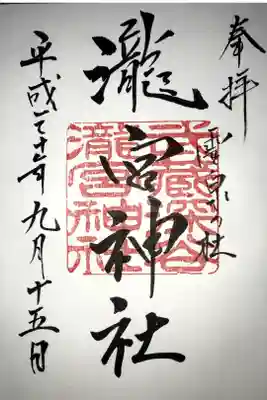 奉拝
瀧宮神社
武蔵深谷
瀧宮神社
平成 十年九月十五日